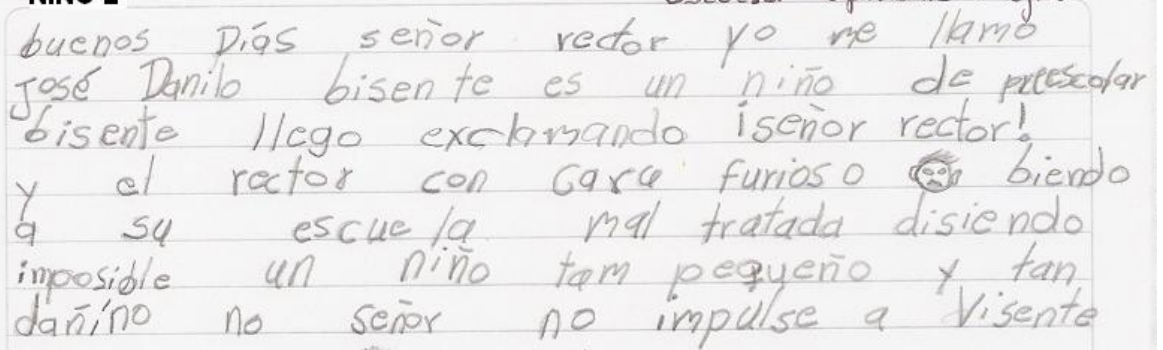 buenos Días señor rector yo me llamo
José Danilo bisente es un niño de preescolar
bisente llego exclamando ¡señor rector!
y el rector con cara furioso biendo
a su escuela mal tratada disiendo
imposible un niño tam pequeño y tan
dañíno no señor no impulse a Visente